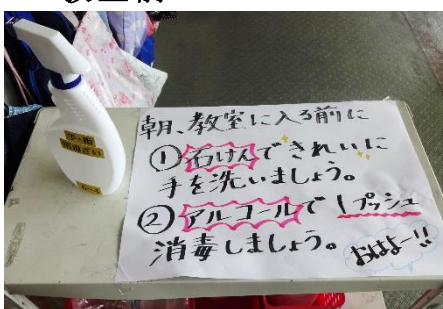 朝、教室に入る前に
①石けんできれいに
手を洗いましょう。
②アルコールで1プッシュ
消毒しましょう。
おはよー!!
手・指